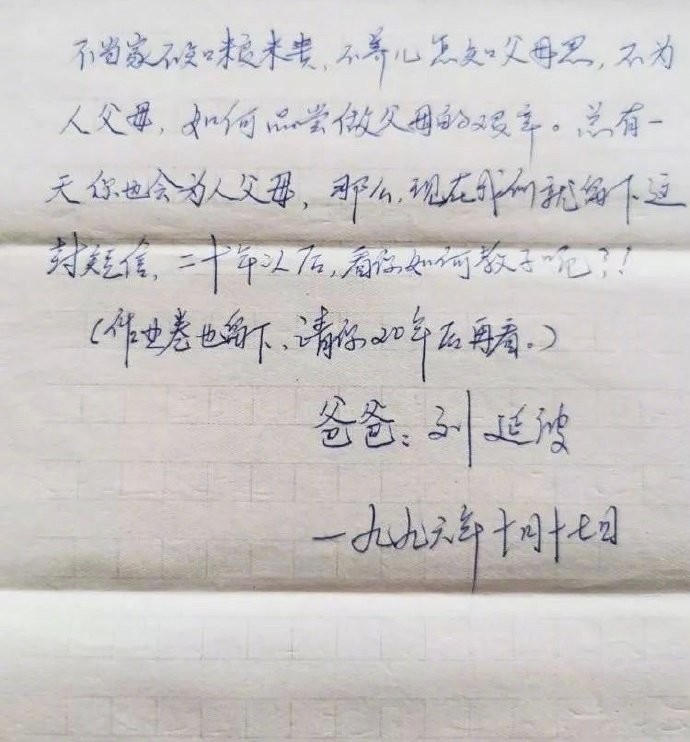 不当家不知粮米贵，不养儿怎知父母恩，不为
人父母，如何品尝做父母的艰辛。总有一
天你也会为人父母，那么，现在我们就留下这
封短信，二十年以后，看你如何教子呢？！
（作业卷也留下，请你20年后再看。）
爸爸：刘延波
一九九六年十月十七日